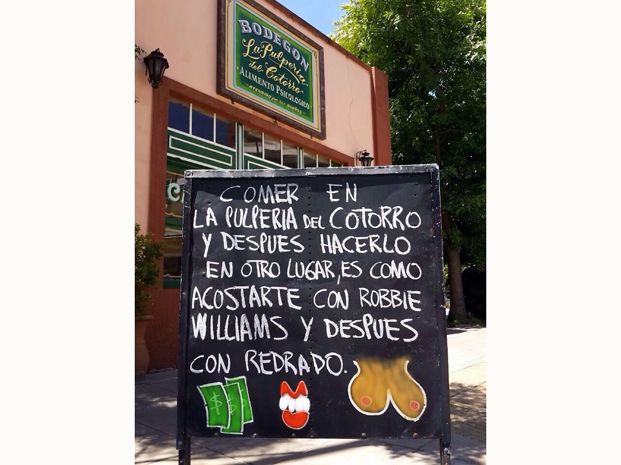 BODEGON
La Pulperia
del Cotorro
ALIMENTO PSICOLOGICO
COMER EN
LA PULPERIA DEL COTORRO
Y DESPUES HACERLO
EN OTRO LUGAR, ES COMO
ACOSTARTE CON ROBBIE
WILLIAMS Y DESPUES
CON REDRADO.
$ $